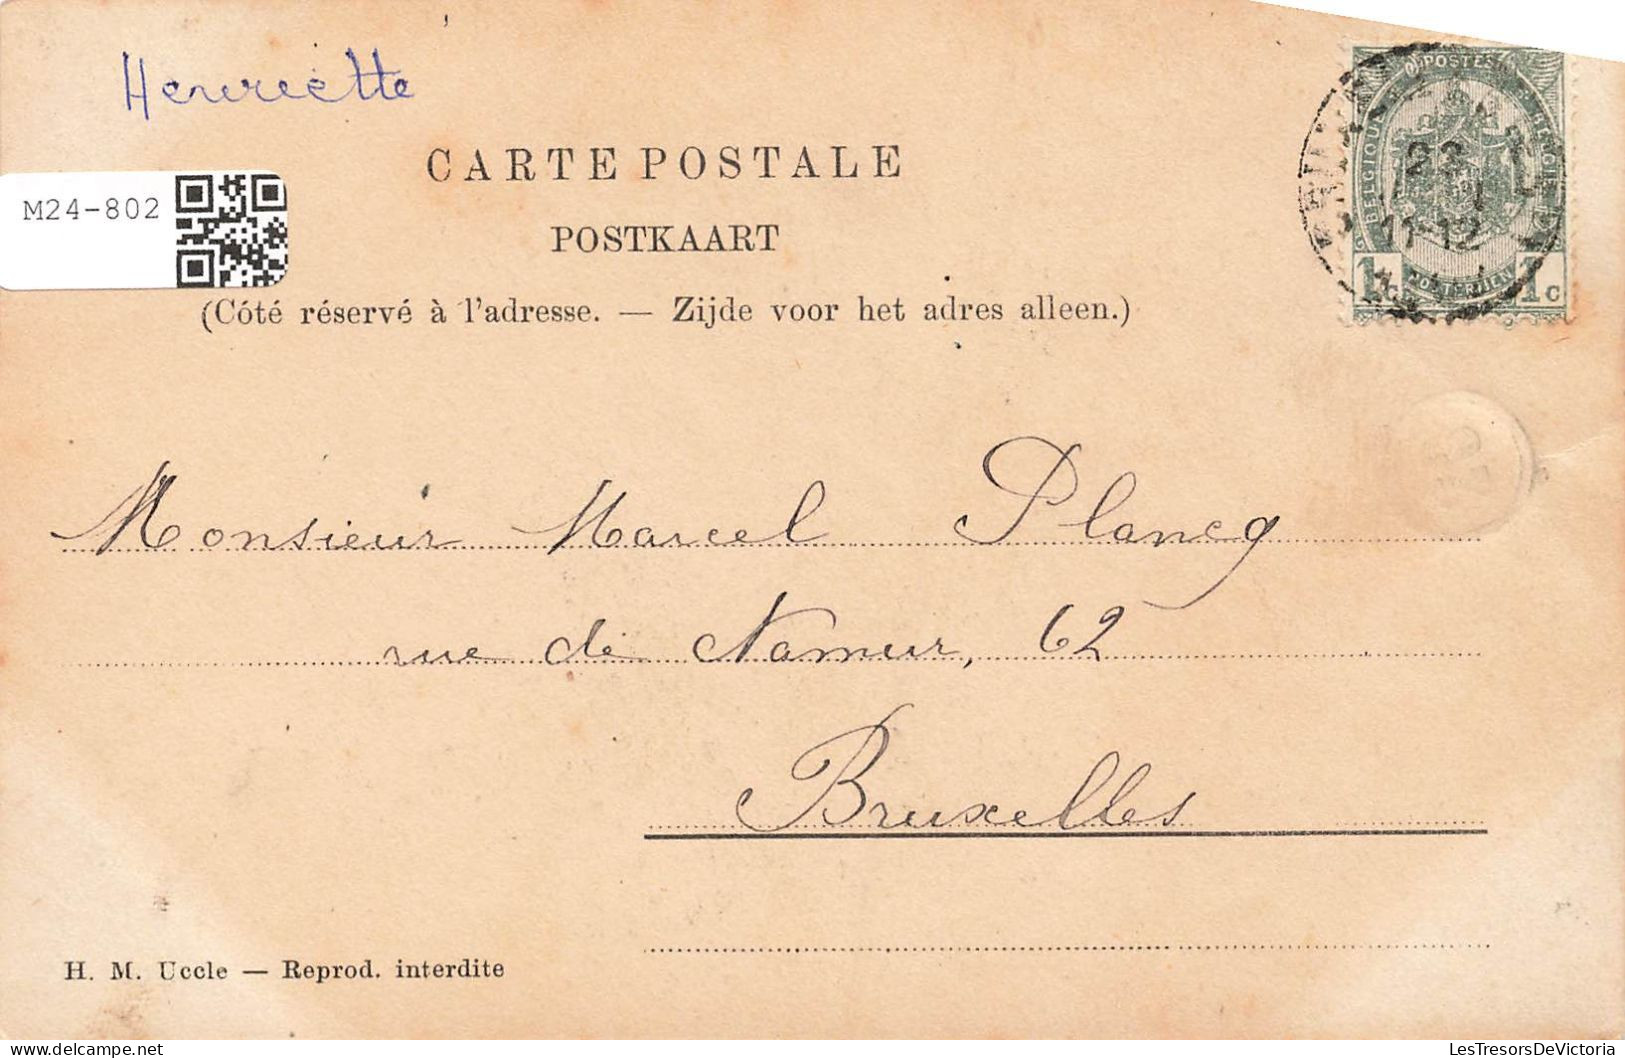 Henriette
CARTE POSTALE
M24-802
POSTKAART
(Côté réservé à l'adresse. — Zijde voor het adres alleen.)
POSTES
BELGIQUE
22
11-12
1c 1c
Monsieur Marcel Plancq
rue de Namur, 62
Bruxelles
H. M. Uccle — Reprod. interdite
LesTresorsDeVictoria